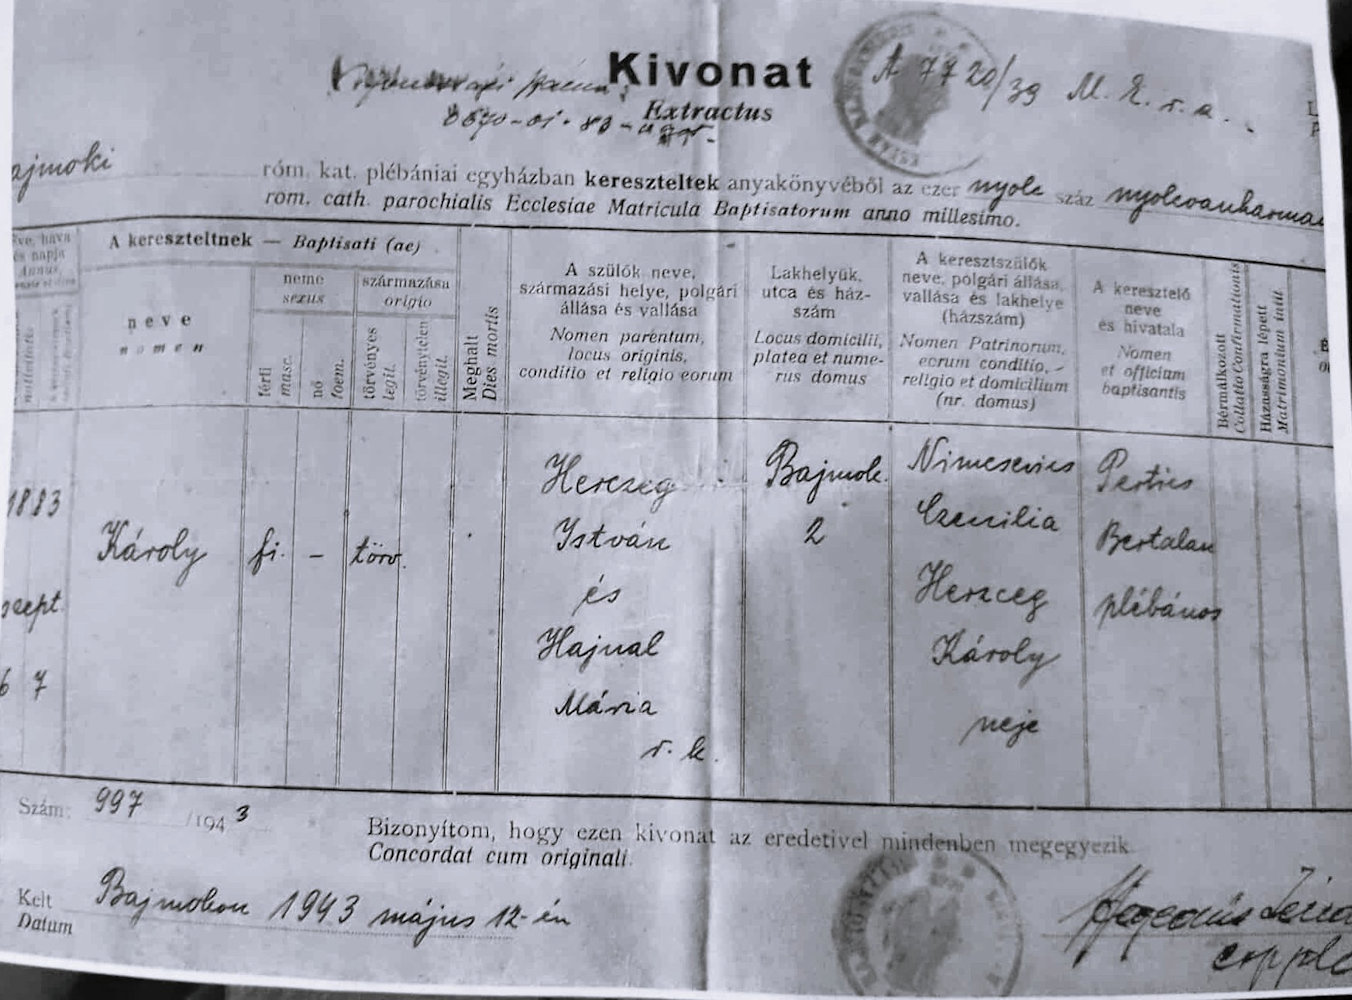 Kivonat
Extractus
A 7720/39 M. E. r. a.
ajmoki róm. kat. plébániai egyházban kereszteltek anyakönyvéből az ezer nyolc száz nyolcvanharma
rom. cath. parochialis Ecclesiae Matricula Baptisatorum anno millesimo.
A kereszteltnek — Baptisati (ae)
neve
nomen
neme
sexus
férfi
masc.
nő
foem.
származása
origio
törvényes
legit.
törvénytelen
illegit.
Meghalt
Dies mortis
A szülők neve,
származási helye, polgári
állása és vallása
Nomen parentum,
locus originis,
conditio et religio eorum
Lakhelyük,
utca és ház-
szám
Locus domicilii,
platea et nume-
rus domus
A keresztszülők
neve, polgári állása,
vallása és lakhelye
(házszám)
Nomen Patrinorum,
eorum conditio,
religio et domicilium
(nr. domus)
A keresztelő
neve
és hivatala
Nomen
et officium
baptisantis
Bérmálkozott
Collatio Confirmationis
Házasságra lépett
Matrimonium iniit
1883
szept.
6 7
Károly
fi.
–
törv.
Herczeg
István
és
Hajnal
Mária
r. k.
Bajmok
2
Nimcsevics
Czecilia
Herczeg
Károly
neje
Pertics
Bertalan
plébános
Szám: 997 /1943
Bizonyítom, hogy ezen kivonat az eredetivel mindenben megegyezik
Concordat cum originali.
Kelt Bajmokon 1943 május 12-én
Datum